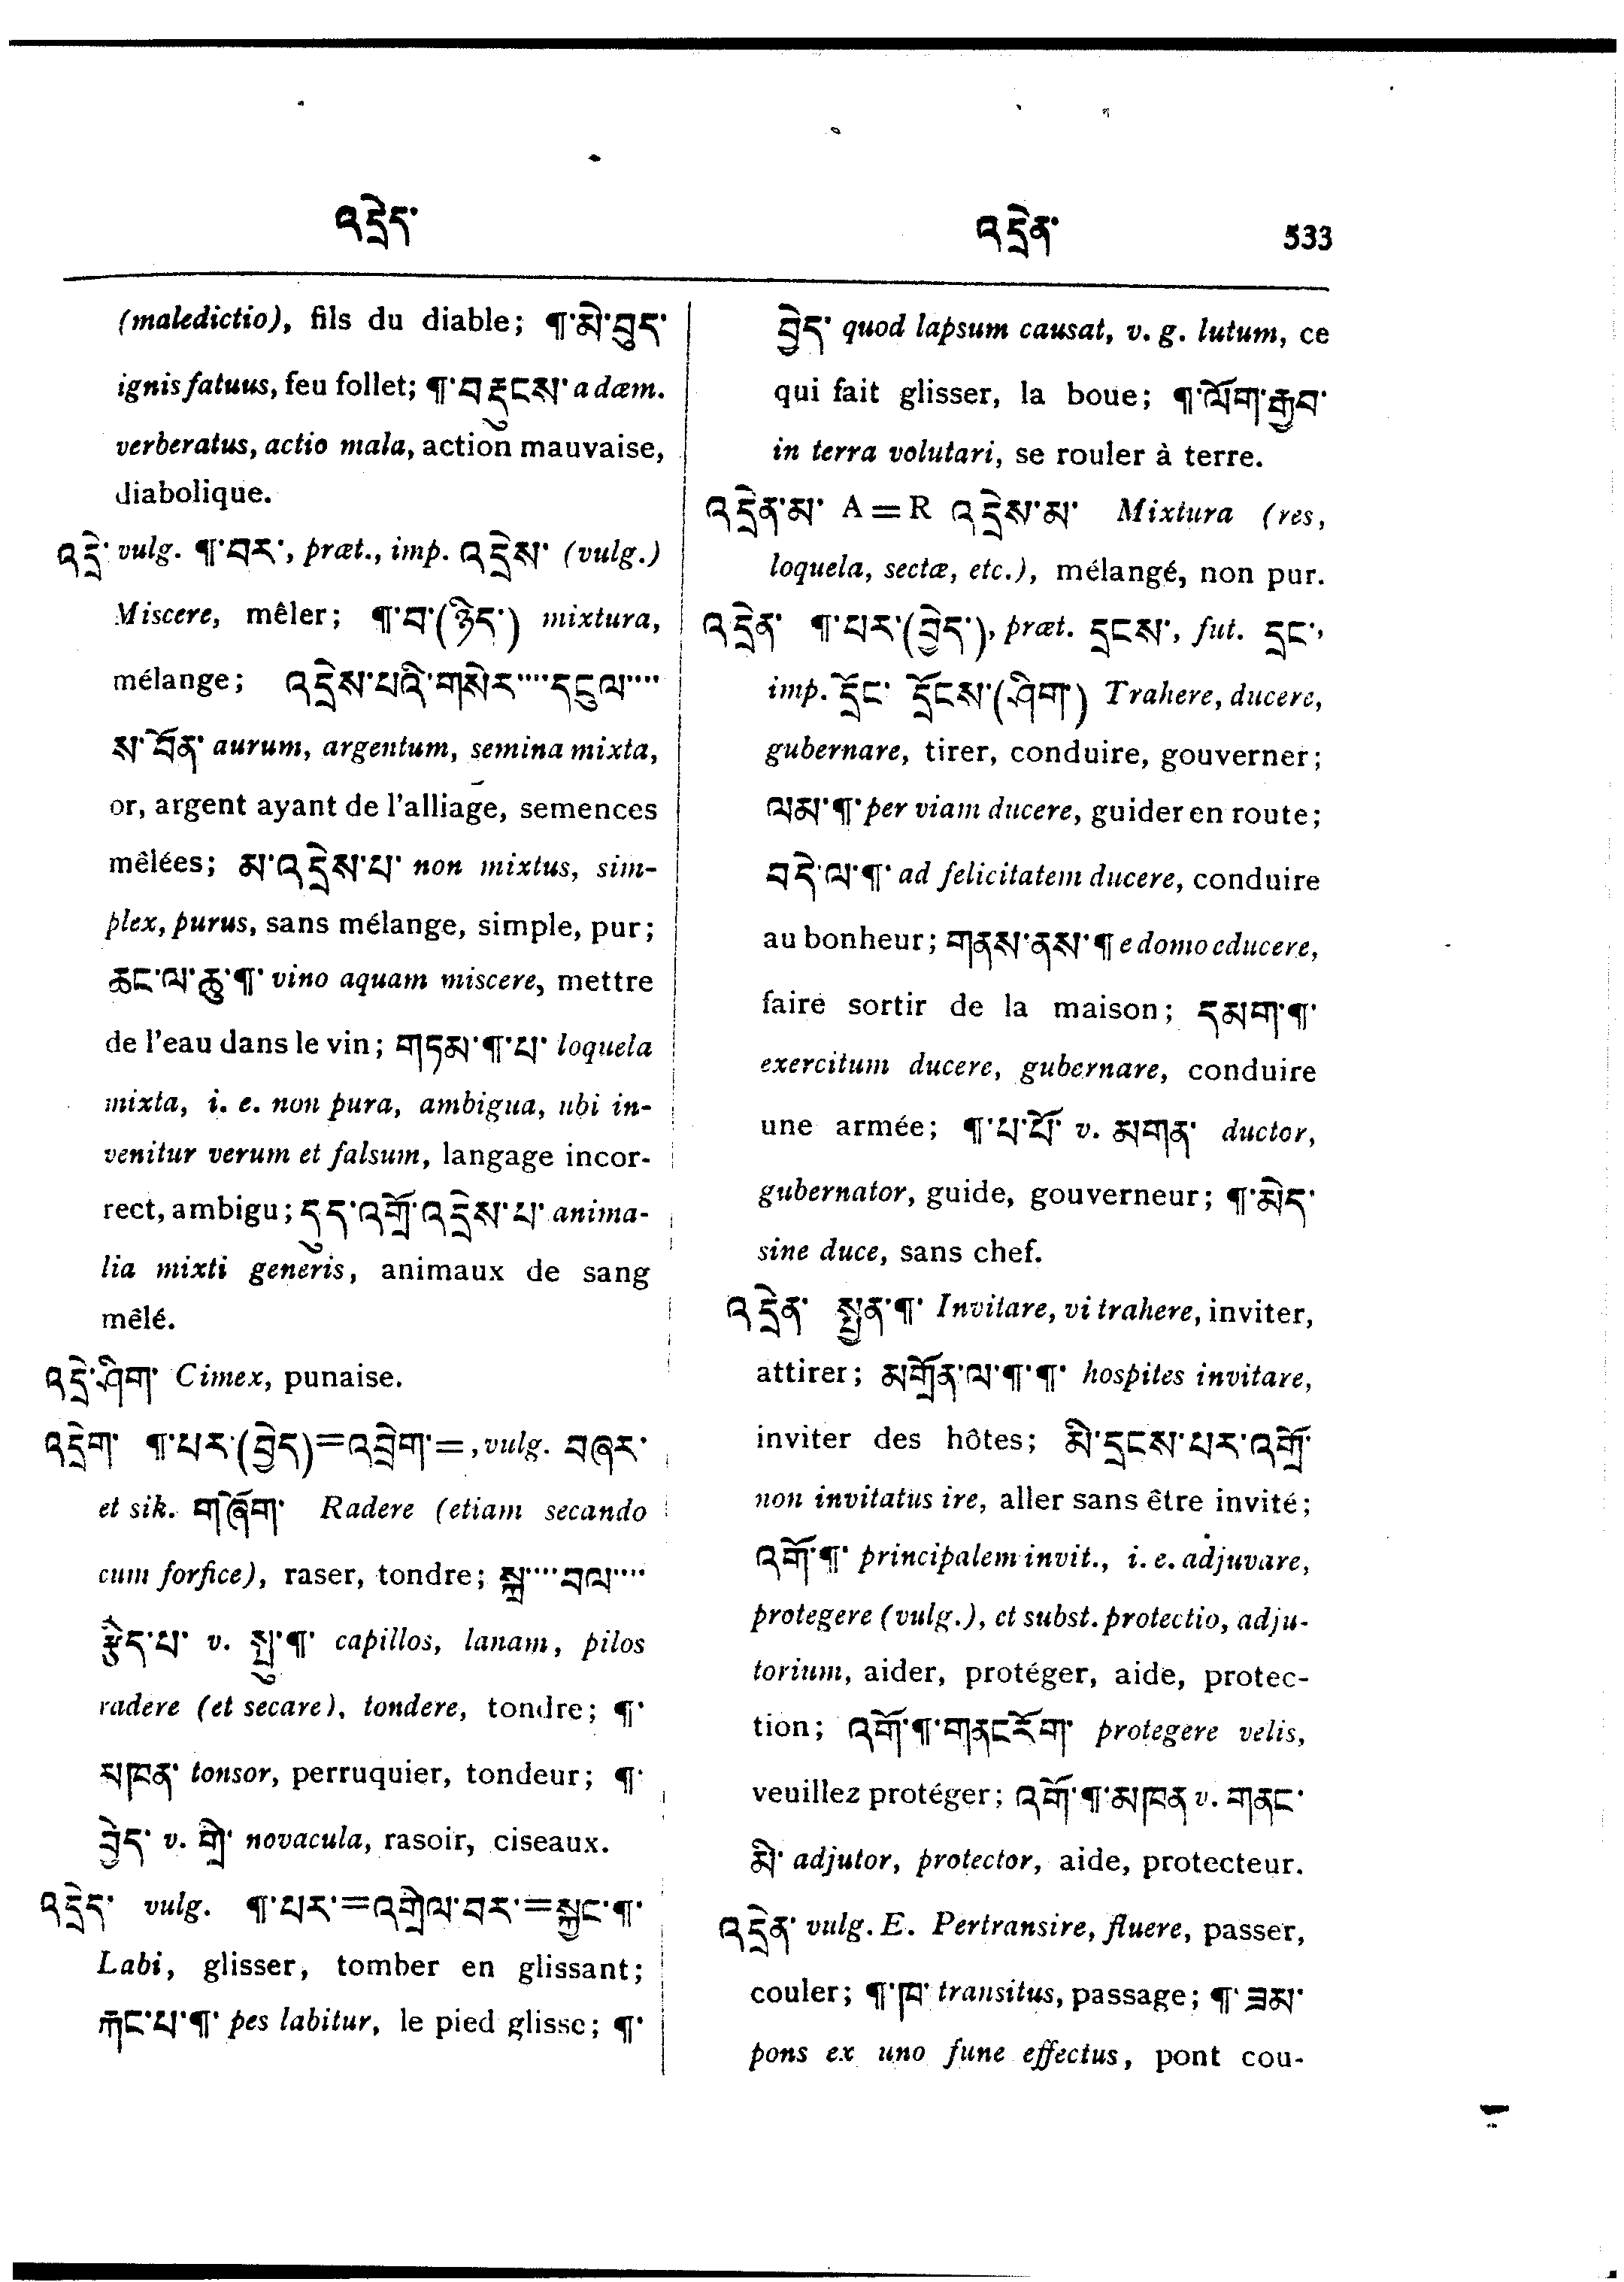 འདྲེད་
འདྲེན་ 533
(maledictio), fils du diable; ¶་མེ་བུད་
ignis fatuus, feu follet; ¶་བརྡུངས་ a dæm.
verberatus, actio mala, action mauvaise,
diabolique.
འདྲེ་ vulg. ¶་བར་, præt., imp. འདྲེས་ (vulg.)
Miscere, mêler; ¶་བ་(ཉིད་) mixtura,
mélange; འདྲེས་པའི་གསེར་···དངུལ་···
ས་བོན་ aurum, argentum, semina mixta,
or, argent ayant de l'alliage, semences
mêlées; མ་འདྲེས་པ་ non mixtus, sim-
plex, purus, sans mélange, simple, pur;
ཆང་ལ་ཆུ་¶་ vino aquam miscere, mettre
de l'eau dans le vin; གཏམ་¶་པ་ loquela
mixta, i. e. non pura, ambigua, ubi in-
venitur verum et falsum, langage incor-
rect, ambigu; དུད་འགྲོ་འདྲེས་པ་ anima-
lia mixti generis, animaux de sang
mêlé.
འདྲེ་ཤིག་ Cimex, punaise.
འདྲེག་ ¶་པར་(བྱེད)=འབྲེག་=, vulg. བཞར་
et sik. གཞོག་ Radere (etiam secando
cum forfice), raser, tondre; སྐྲ་···བལ་···
རྩིད་པ་ v. སྤུ་¶་ capillos, lanam, pilos
radere (et secare), tondere, tondre; ¶་
མཁན་ tonsor, perruquier, tondeur; ¶་
བྱེད་ v. གྲི་ novacula, rasoir, ciseaux.
འདྲེད་ vulg. ¶་པར་=འགྲིལ་བར་=སྐྱང་¶་
Labi, glisser, tomber en glissant;
རྐང་པ་¶་ pes labitur, le pied glisse; ¶་
བྱེད་ quod lapsum causat, v. g. lutum, ce
qui fait glisser, la boue; ¶་ལོག་རྒྱབ་
in terra volutari, se rouler à terre.
འདྲེན་མ་ A=R འདྲེས་མ་ Mixtura (res,
loquela, sectæ, etc.), mélangé, non pur.
འདྲེན་ ¶་པར་(བྱེད་), præt. དྲངས་, fut. དྲང་,
imp. དྲོང་ དྲོངས་(ཤིག་) Trahere, ducere,
gubernare, tirer, conduire, gouverner;
ལམ་¶་ per viam ducere, guider en route;
བདེ་ལ་¶་ ad felicitatem ducere, conduire
au bonheur; གནས་ནས་¶ e domo educere,
faire sortir de la maison; དམག་¶་
exercitum ducere, gubernare, conduire
une armée; ¶་པ་པོ་ v. མགན་ ductor,
gubernator, guide, gouverneur; ¶་མེད་
sine duce, sans chef.
འདྲེན་ སྤྱན་¶་ Invitare, vi trahere, inviter,
attirer; མགྲོན་ལ་¶་¶་ hospites invitare,
inviter des hôtes; མི་དྲངས་པར་འགྲོ་
non invitatus ire, aller sans être invité;
འགོ་¶་ principalem invit., i. e. adjuvare,
protegere (vulg.), et subst. protectio, adju-
torium, aider, protéger, aide, protec-
tion; འགོ་¶་གནང་རོག་ protegere velis,
veuillez protéger; འགོ་¶་མཁན v. གནང་
མི་ adjutor, protector, aide, protecteur.
འདྲེན་ vulg. E. Pertransire, fluere, passer,
couler; ¶་ཁ་ transitus, passage; ¶་ཟམ་
pons ex uno fune effectus, pont cou-